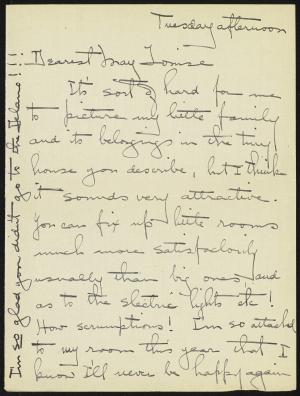 Tuesday afternoon
Dearest May Louise
It's sort of hard for me
to picture my little family
and its belongings in the tiny
house you describe, but I think
it sounds very attractive.
You can fix up little rooms
much more satisfactorily
usually than big ones and
as to the electric lights etc!
How scrumptious! I'm so attached
to my room this year that I
know I'll never be happy again
I'm so glad you didn't go to the !!!